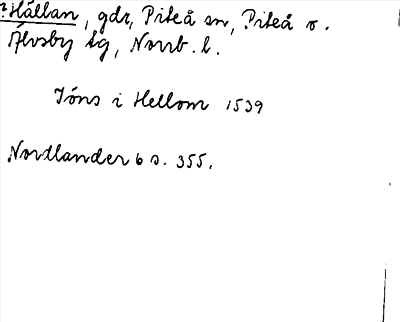 ? Hällan, gdr, Piteå sn, Piteå o.
Älvsby tg, Norrb. l.
Jöns i Hellom 1539
Nordlander 6 s. 355.